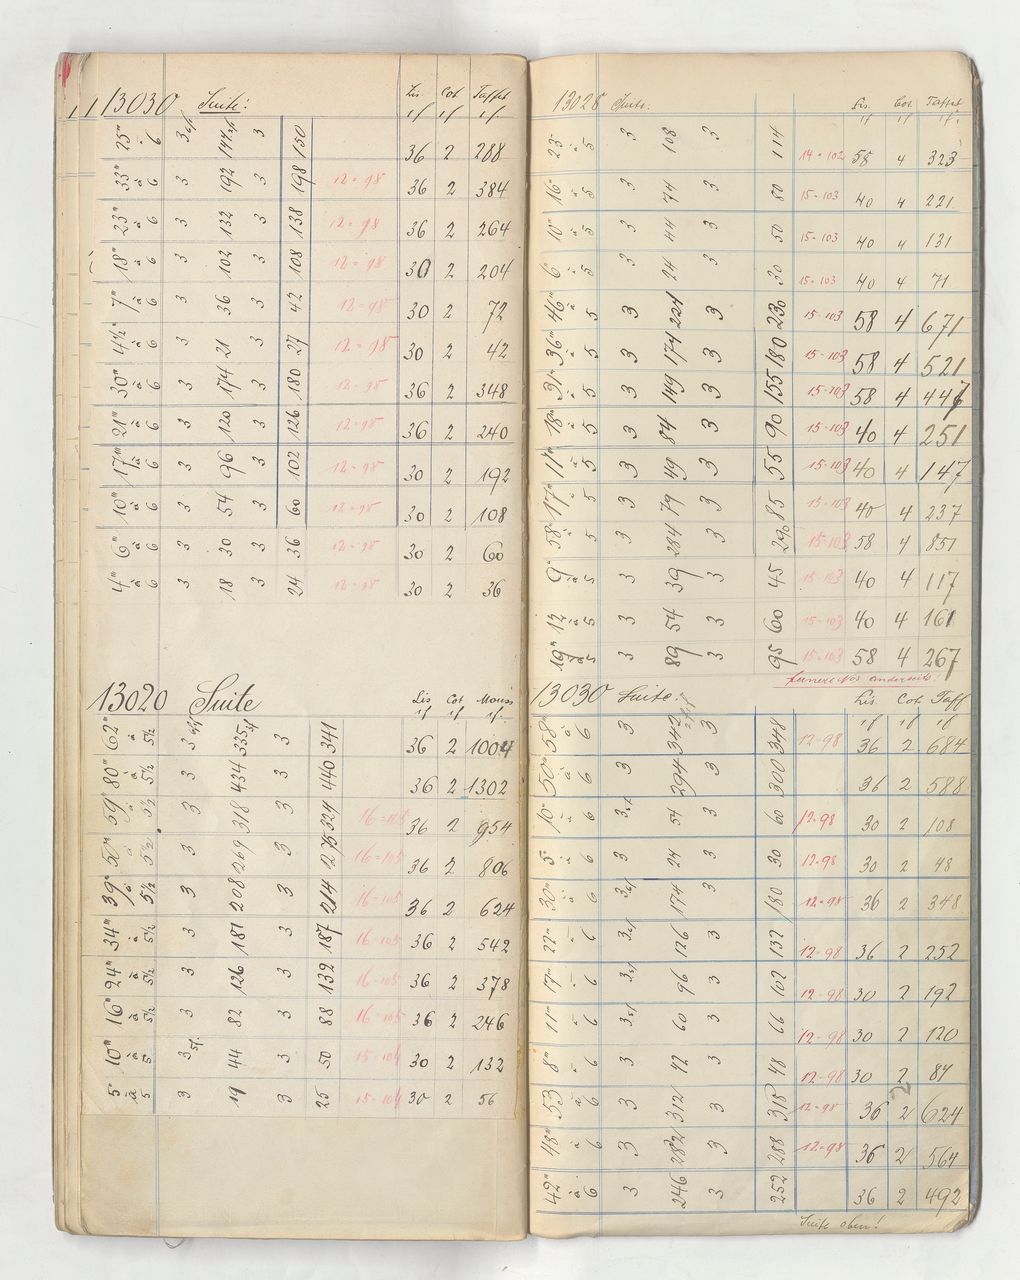 13030 Suite: Lis. Cot Taffet
25''' à 6 3 144 3 150 36 2 288
33''' à 6 3 192 3 198 12=98 36 2 384
23''' à 6 3 132 3 138 12=98 36 2 264
18''' à 6 3 102 3 108 12=98 30 2 204
7''' à 6 3 36 3 42 12=98 30 2 72
4½''' à 6 3 21 3 27 12=98 30 2 42
30''' à 6 3 174 3 180 12=98 36 2 348
21''' à 6 3 120 3 126 12=98 36 2 240
17''' à 6 3 96 3 102 12=98 30 2 192
10''' à 6 3 54 3 60 12=98 30 2 108
6''' à 6 3 30 3 36 12=98 30 2 60
4''' à 6 3 18 3 24 12=98 30 2 36
13020 Suite Lis Cot
62''' à 5½ 3 335 3 341 36 2 1004
80''' à 5½ 3 434 3 440 36 2 1302
59''' à 5½ 3 318 3 324 16=105 36 2 954
50''' à 5½ 3 269 3 275 16=105 36 2 806
39''' à 5½ 3 208 3 214 16=105 36 2 624
34''' à 5½ 3 181 3 187 16=105 36 2 542
24''' à 5½ 3 126 3 132 16=105 36 2 378
16''' à 5½ 3 82 3 88 16=105 36 2 246
10''' à 5 3 44 3 50 15=104 30 2 132
5 à 5 3 19 3 25 15=104 30 2 56
13028 Suite: Lis. Cot. Taffet
23''' à 5 3 108 3 114 14=102 58 4 323
16''' à 5 3 74 3 80 15=103 40 4 221
10''' à 5 3 44 3 50 15=103 40 4 131
6''' à 5 3 24 3 30 15=103 40 4 71
46''' à 5 3 224 3 230 15=103 58 4 671
36''' à 5 3 174 3 180 15=103 58 4 521
31''' à 5 3 149 3 155 15=103 58 4 446
18''' à 5 3 84 3 90 15=103 40 4 251
11''' à 5 3 49 3 55 15=103 40 4 147
17''' à 5 3 79 3 85 15=103 40 4 237
58''' à 5 3 284 3 290 15=103 58 4 851
9''' à 5 3 39 3 45 15=103 40 4 117
12 à 5 3 54 3 60 15=103 40 4 161
19''' à 5 3 89 3 95 15=103 58 4 267
fernere Nos anderseits!
13030 Suite: Lis. Cot. Taff
58''' à 6 3 342 3 348 12-98 36 2 684
50''' à 6 3 294 3 300 36 2 588
10''' à 6 3 54 3 60 12=98 30 2 108
5 à 6 3 24 3 30 12=98 30 2 48
30''' à 6 3 174 3 180 12=98 36 2 348
22''' à 6 3 126 3 132 12=98 36 2 252
17''' à 6 3 96 3 102 12=98 30 2 192
11''' à 6 3 60 3 66 12-98 30 2 120
8''' à 6 3 42 3 48 12-98 30 2 84
53 à 6 3 312 3 318 12-98 36 2 624
48''' à 6 3 282 3 288 12=98 36 2 564
42''' à 6 3 246 3 252 36 2 492
Suite oben!